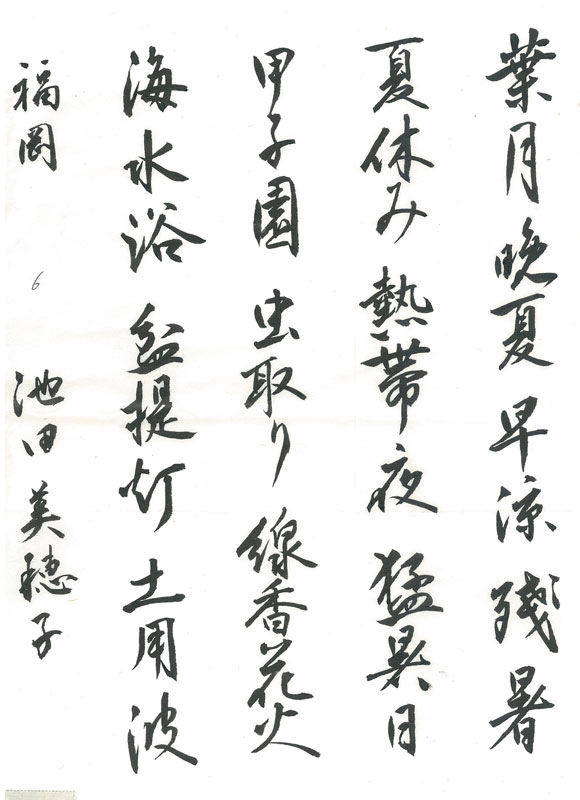 葉月 晩夏 早涼 残暑
夏休み 熱帯夜 猛暑日
甲子園 虫取り 線香花火
海水浴 盆提灯 土用波
福岡 6 池田美穂子